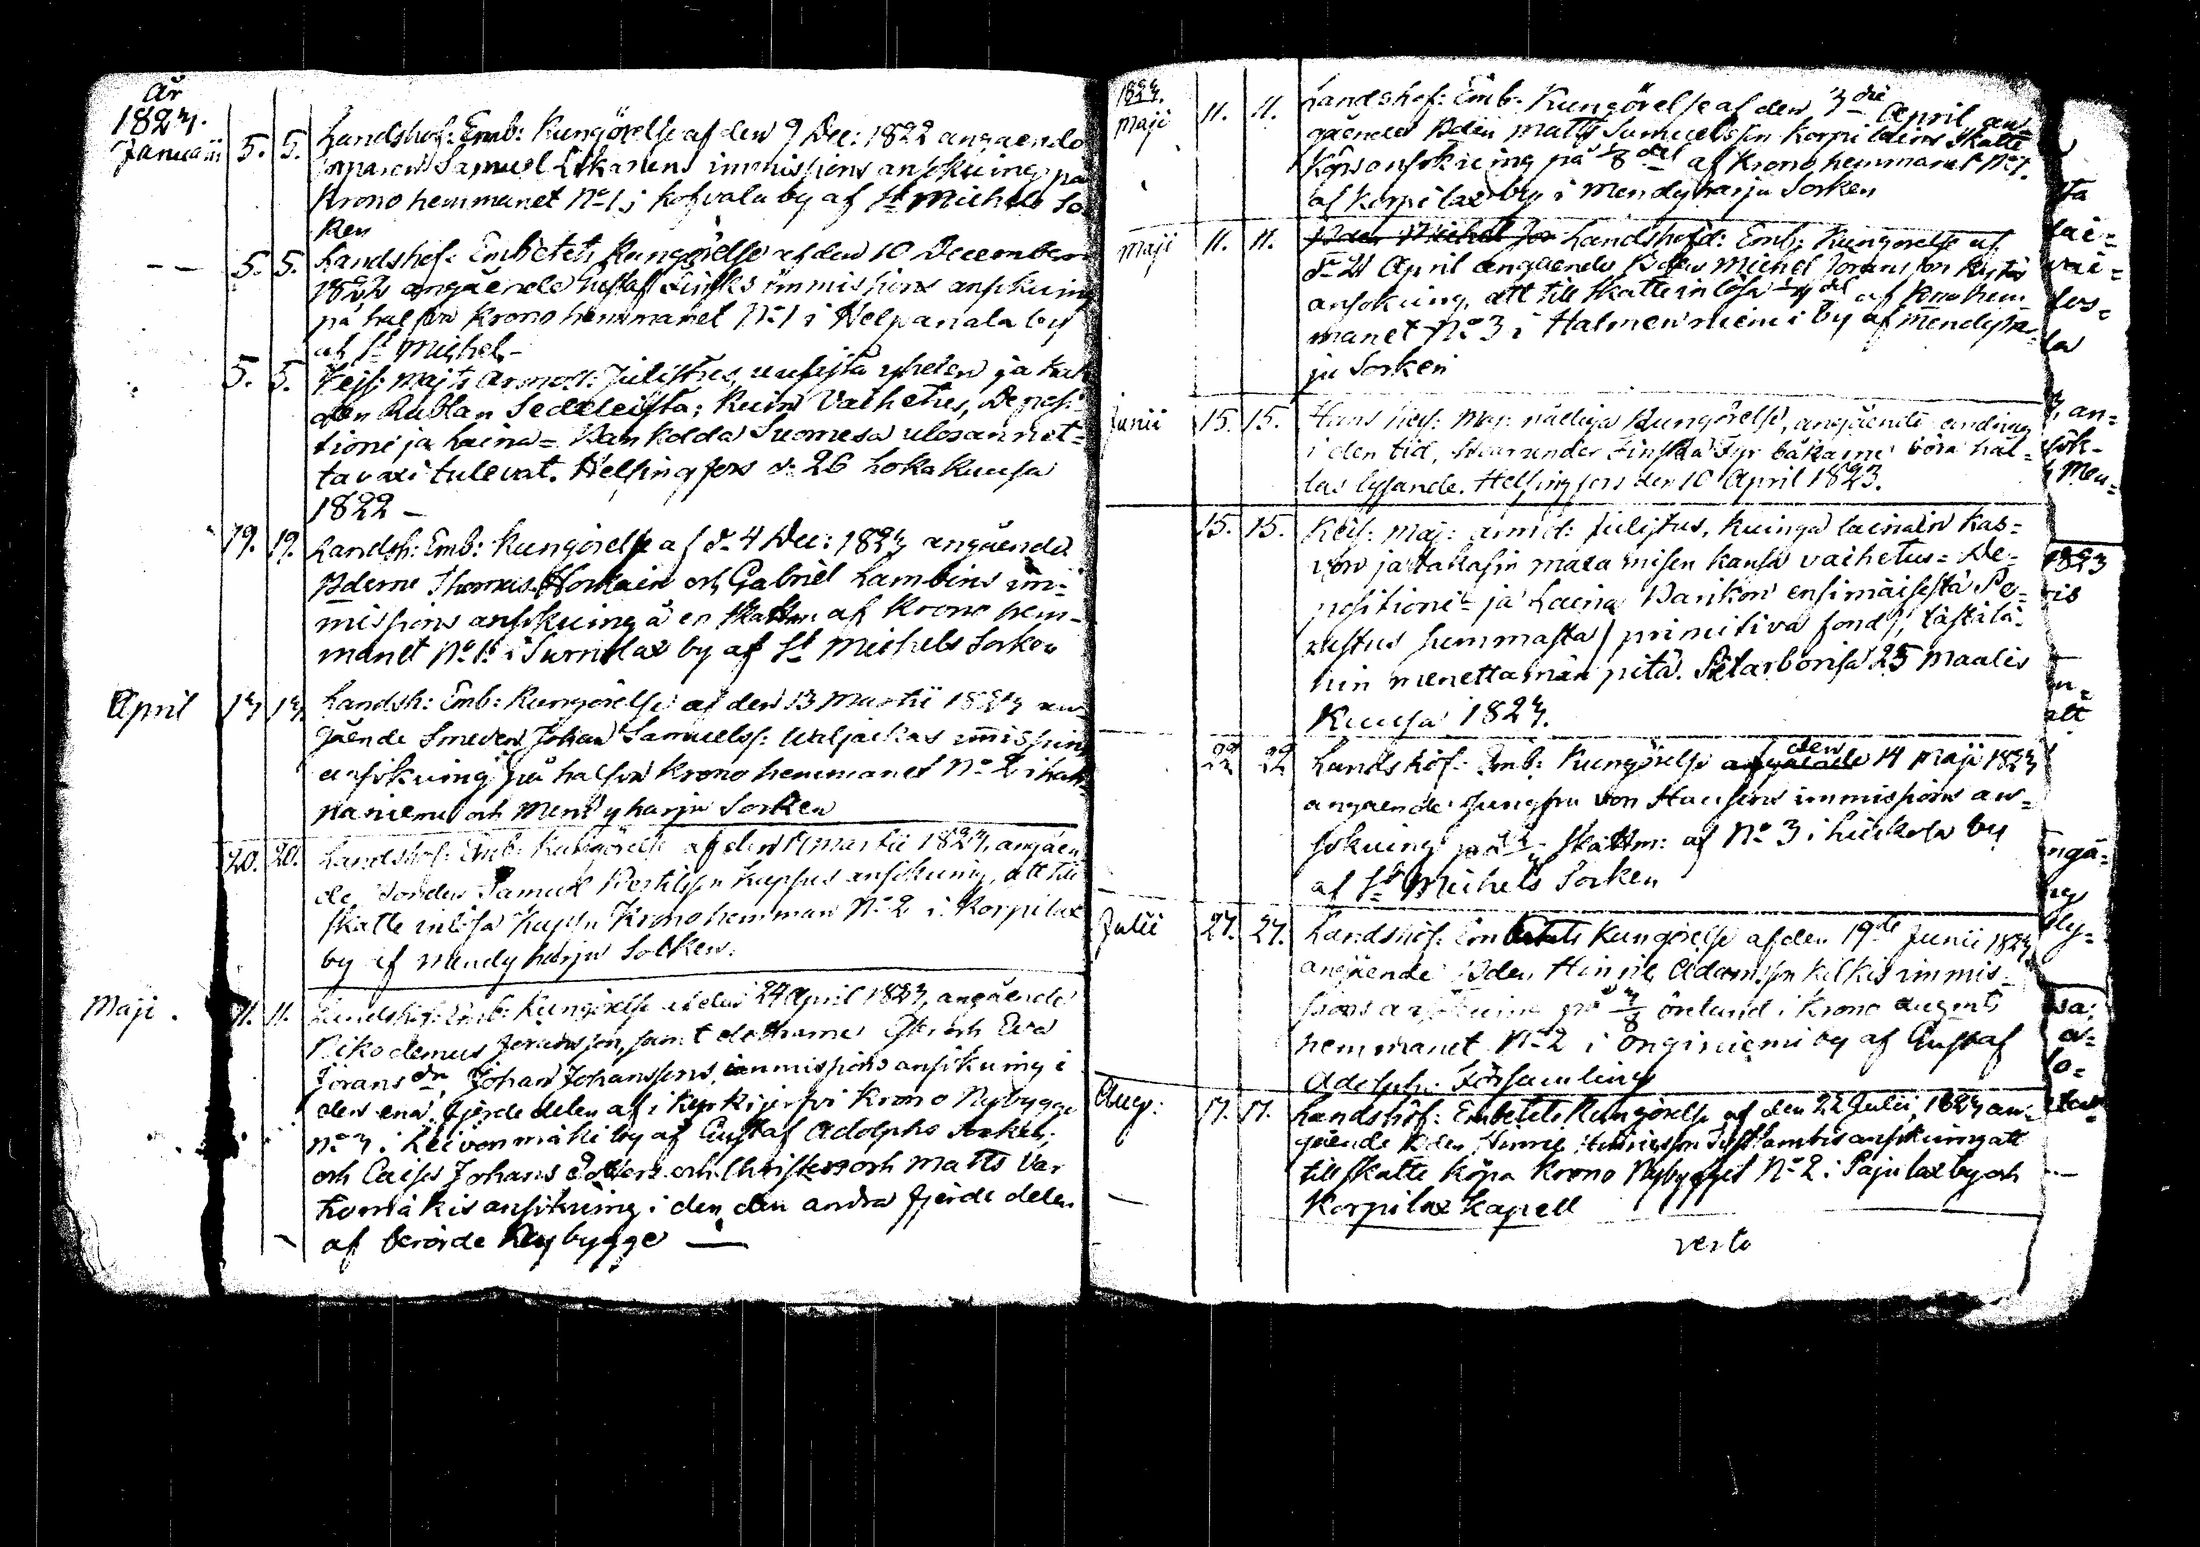 År
1823.
Januarii 5. 5. Landshöf: Emb: Kungörelse af den 9 Dec: 1822 angaende
Inparen Samuel Likanens immissions ansökning på
Krono hemmanet No 1 i Kofvala by af St Michels So
ken
5. 5. Landshof: Embetets Kungörelse af den 10 December
1822 angående Gustaf Finks immissions ansökning
på halfva Krono hemmanet No 1 i Helpanala by
af St Michel
5. 5. Kejs: Majts Armoll: Julistus, uusista yheden ja kah
den Rublan Sedeleista; Kuin Vaihetus, Deposi
tioni ja Laina= Pankolda Suomesa ulosannet=
tavaxi tulevat. Helsingfors d: 26 Lokakuusa
1822
19. 19. Landsh: Emb: Kungörelse af d: 4 Dec: 1823 angående
Bderne Thomas och Gabriel Lambins im=
missions ansökning å en skattm af Krono hem=
manet No 1 i Surnulax by af St Michels Sorken
April 13 13 Landsh: Emb: Kungörelse af den 13 Martii 1823 an
gående Smeden Johan Samuelss: Waljackas immissions
ansökning på halfva Krono hemmanet No 2 i Hah=
naniemi och Mendyharju Sorken
20. 20. Landshöf: Emb: Kungörelse af den Martii 1823, angåen
de Bonden Samuel Bertilssn Kuppus ansökning, att till
skatte inlösa Krono hemman No 2 i Korpilax
by af Mendyharju Solken.
Maji. 11. 11. Landshöf: Emb: Kungörelse af den 24 April 1823, angående
Nikodemus Joransson, samt döttrarne och Eva
Jorans dr Johan Johanssons, immissions ansökning i
den ena fjerde delen af i Kyrkijerfvi Krono Nybygge
No 3 i Leivonmäki by af Gustaf Adolphs Sorken;
och Caisa Johans Dotters och Christer och Matts Var
komäkis ansökning i den den andra fjerde delen
af berörde Nybygge
1823.
Maji 11. 11. Landshöf: Emb: Kungörelse af den 3 die April an=
gåendes Bden Matts Samuelssn Korpiladins Skatte
Köps ansökning på 1/8 del af Krono hemmanet No 1.
af Korpilax by i Mendyharju Sorken
Maji 11. 11. Landshöfd: Emb: Kungörelse af
d: 21 April angaende Bden Michel Joransson
ansökning, att till Skatte inlösa del af Krono hem
manet No 3 i Halmenniemi by af Mendyhar=
ju Sorken
Junii 15. 15. Hans Keis: Maj: nådiga Kungörelse, angående ändring
i den tid, hvarunder Finska Fyr båkarne böra hål=
las lysande. Helsingfors den 10 April 1823.
15. 15. Keis: Maj: armol: Julistus, kuinga lainain kas=
von ja takasin maxamisen kansa vaihetus= De=
positioni= ja Laina Pankon ensimäisestä Pe=
rustus summasta /primitiva fond/, tästälä=
hin menettämän pitä. Pietarborisa 25 Maalis
Kuusa 1823.
22 22 Landshöf: Emb: Kungörelse af den 14 Maji 1823
angaende Jungfru von Hausens immissions an=
sökning på skattm: af No 3 i Liukola by
af St Michels Sorken
Julii 27. 27. Landshöf: Embetets Kungörelse af den 19de Junii 1823
angående Bden Hinric Adamssn Kilkis immis=
sions ansökning på 3/8 öresland i Krono augments
hemmanet No 2 i Onginiemi by af Gustaf
Adolphs Församling
Aug: 17. 17. Landshöf: Embetets Kungörelse af den 22 Julii, 1823 an=
gående Bden ansökning att
till skatte köpa Krono Nybygget No 2 i Pajulax by och
Korpilax Kapell
verto
ta
lai=
vai=
los=
la
an=
sök=
Men=
1823
ris
en=
att
ngå=
by
ly=
sa;
a=
lo=